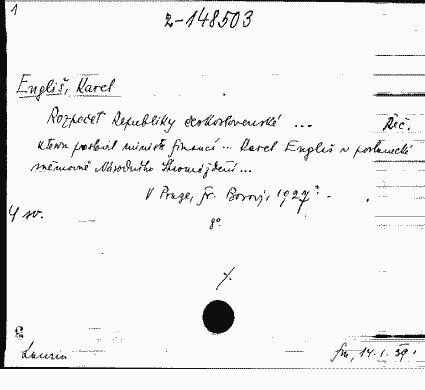 1
z-148503
Engliš, Karel
Rozpočet Republiky československé ... Řeč.
kterou proslovil ministr financí ... Karel Engliš v poslanecké
sněmovně Národního Shromáždění ...
V Praze, Fr. Borový, 1927
4 sv.
8°
/.
fm, 14.1.39.